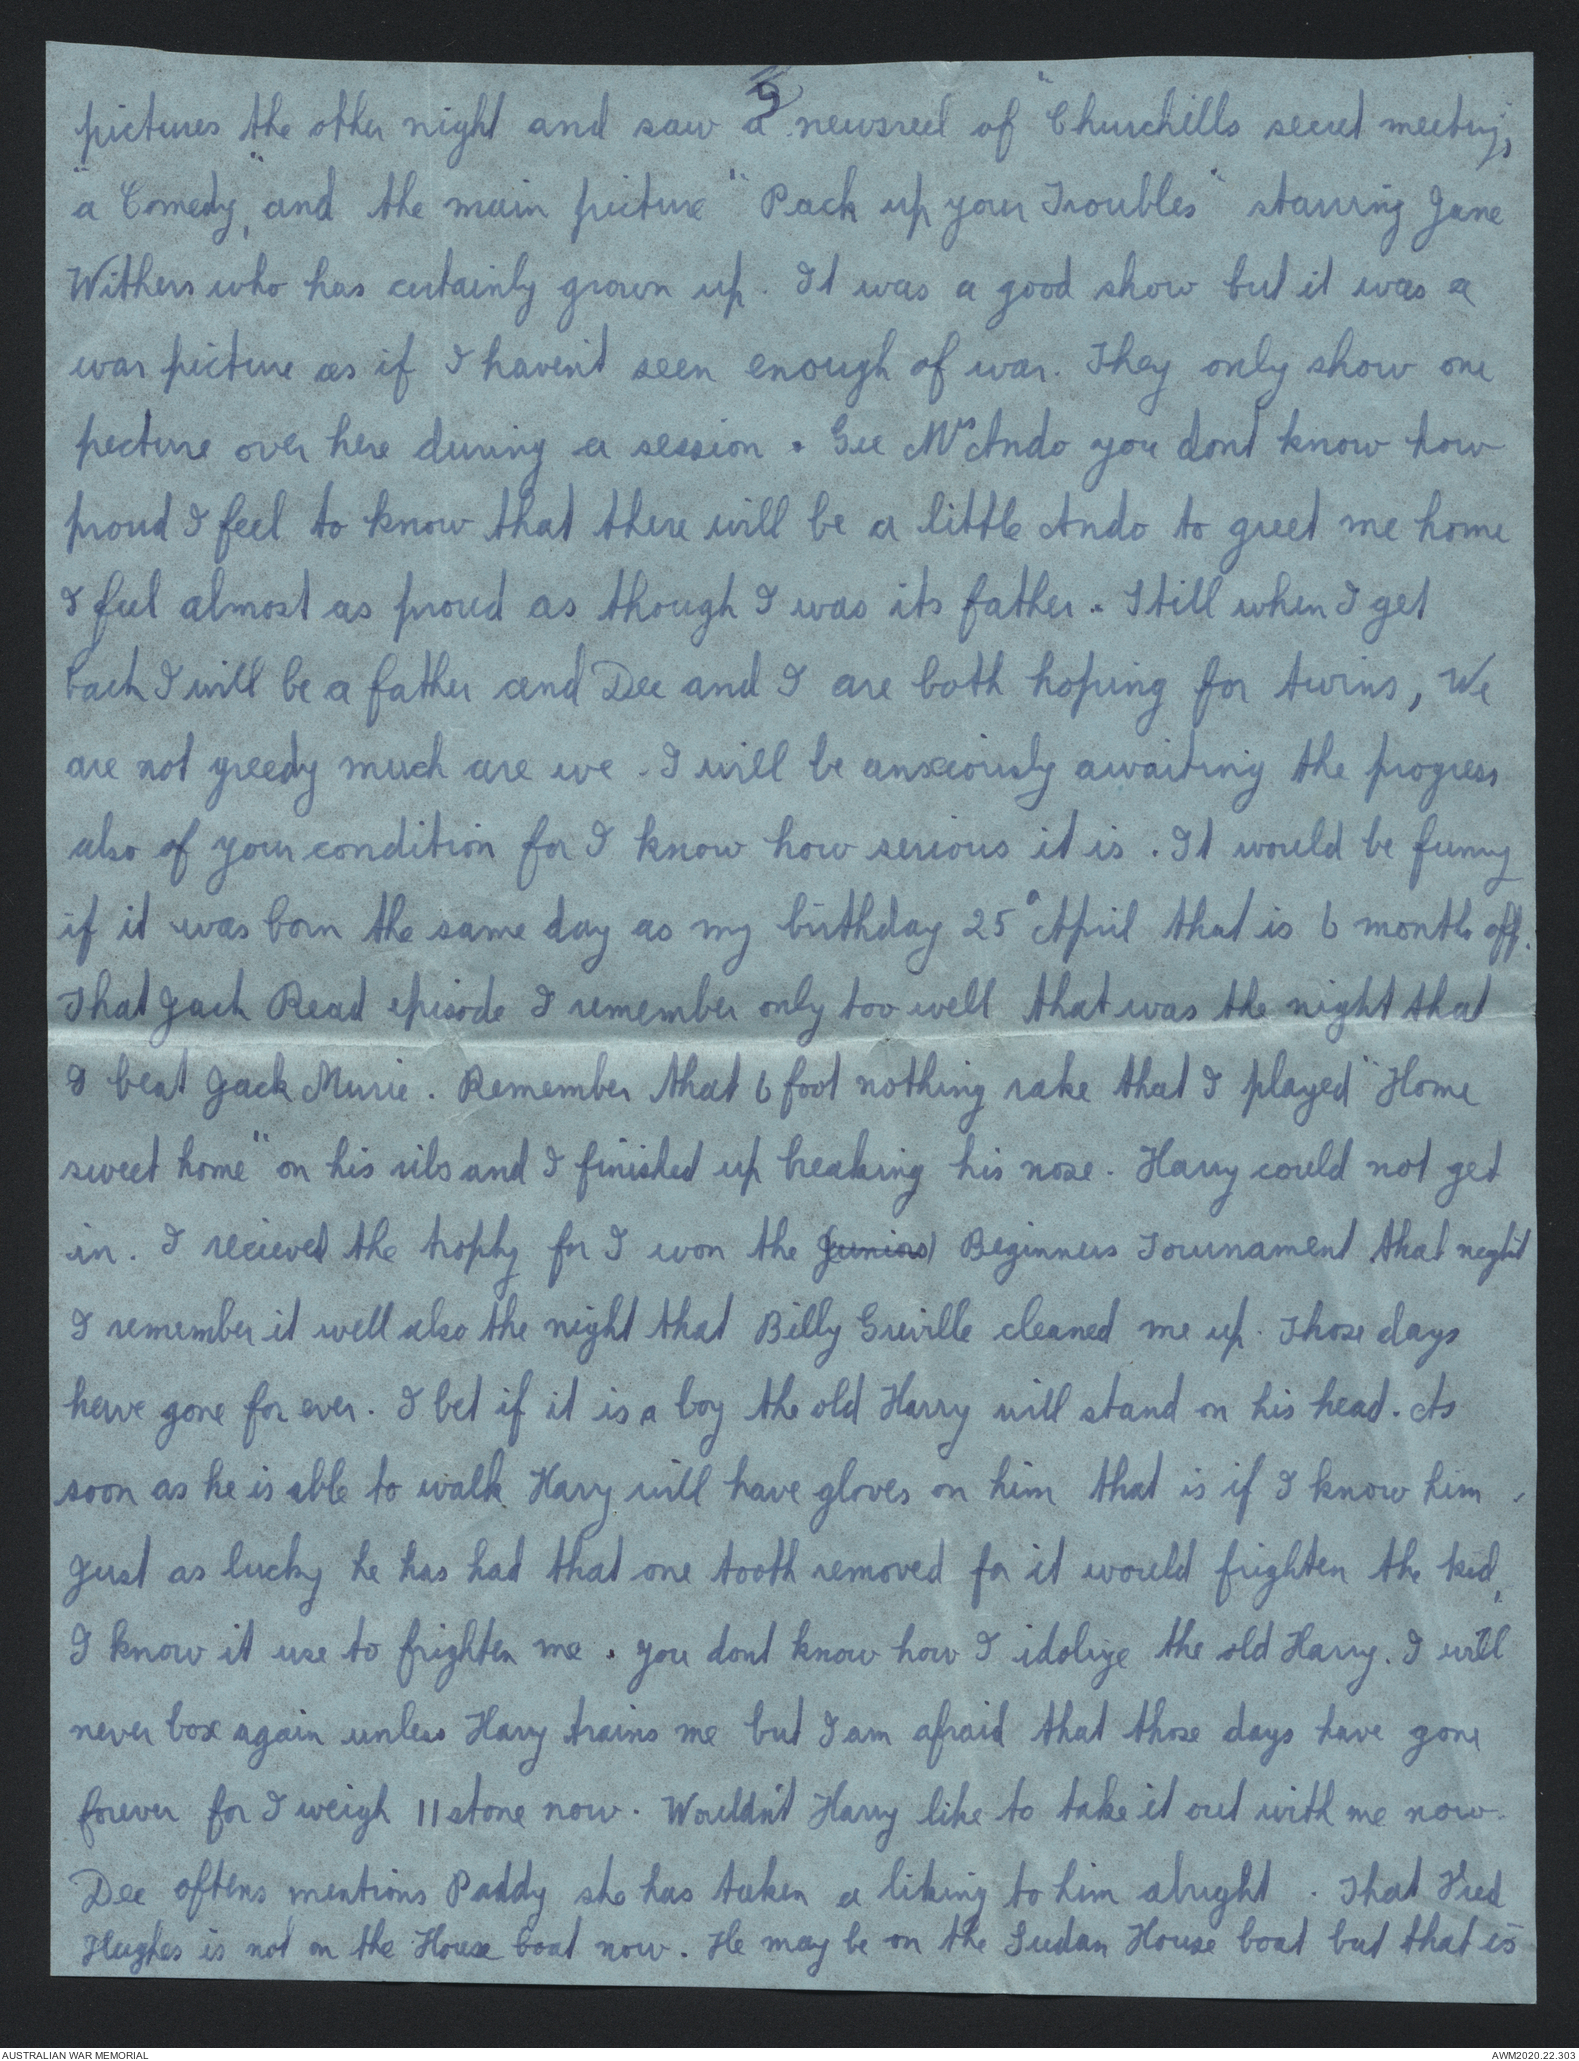 pictures the other night and saw a newsreel of "Churchills secret meeting,
"a Comedy", and the main picture "Pack up your Troubles" starring Jane
Withers who has certainly grown up. It was a good show but it was a
war picture as if I haven't seen enough of war. They only show one
picture over here during a session. Gee Mrs Ando you dont know how
proud I feel to know that there will be a little Ando to greet me home
I feel almost as proud as though I was its father. Still when I get
back I will be a father and Dee and I are both hoping for twins, We
are not greedy much are we. I will be anxiously awaiting the progress
also of your condition for I know how serious it is. It would be funny
if it was born the same day as my birthday 25 April that is 6 months off.
That Jack Read episode I remember only too well that was the night that
I beat Jack Murie. Remember that 6 foot nothing rake that I played "Home
sweet home" on his ribs and I finished up breaking his nose. Harry could not get
in. I recieved the trophy for I won the (Juniors) Beginners Tournament that night
I remember it well also the night that Billy Greville cleaned me up. Those days
have gone for ever. I bet if it is a boy the old Harry will stand on his head. As
soon as he is able to walk Harry will have gloves on him that is if I know him.
Just as lucky he has had that one tooth removed for it would frighten the kid,
I know it use to frighten me. You dont know how I idolize the old Harry. I will
never box again unless Harry trains me but I am afraid that those days have gone
forever for I weigh 11 stone now. Wouldn't Harry like to take it out with me now.
Dee oftens mentions Paddy she has taken a liking to him alright. That Fred
Hughes is not on the House boat now. He may be on the Sudan House boat but that is
AUSTRALIAN WAR MEMORIAL
AWM2020.22.303